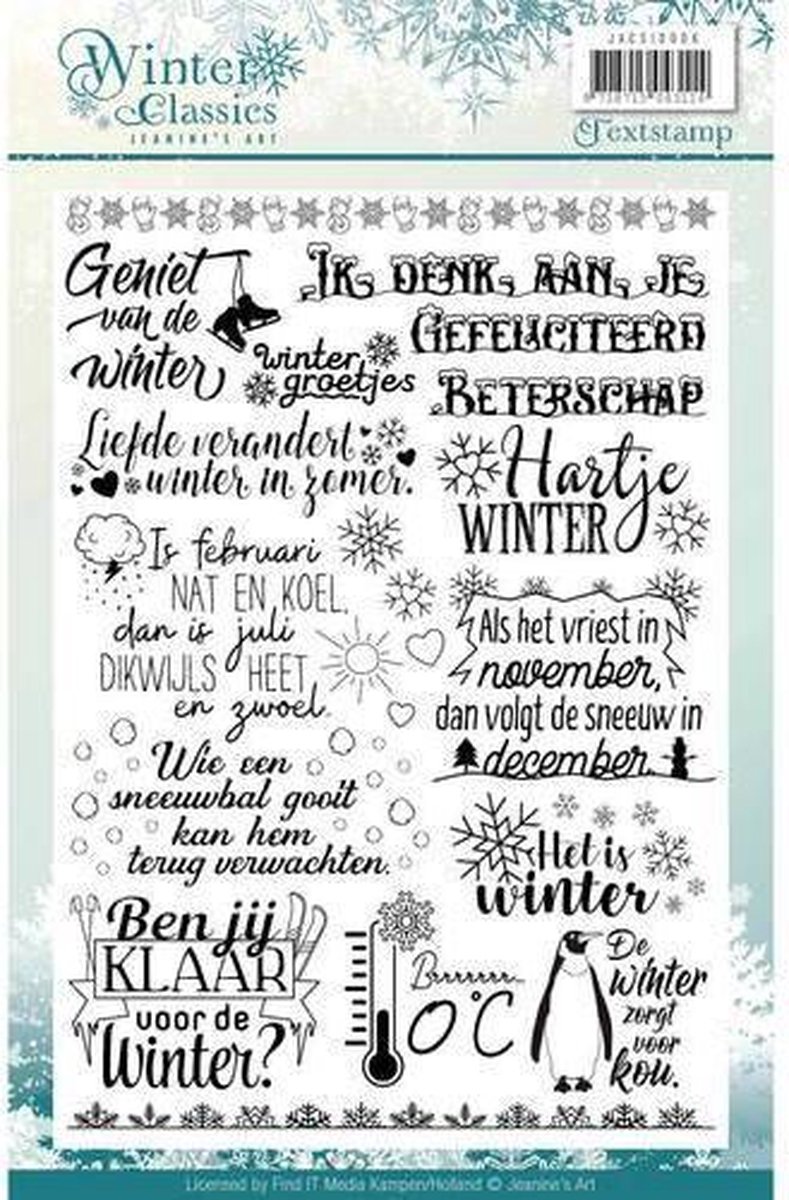 Winter
Classics
JEANINE'S ART
JACS10006
Textstamp
Geniet
van de
winter
IK DENK AAN JE
GEFELICITEERD
BETERSCHAP
winter
groetjes
Liefde verandert
winter in zomer.
Hartje
WINTER
Is februari
NAT EN KOEL,
dan is juli
DIKWIJLS HEET
en zwoel.
Als het vriest in
november,
dan volgt de sneeuw in
december.
Wie een
sneeuwbal gooit
kan hem
terug verwachten.
Het is
winter
Ben jij
KLAAR
voor de
Winter?
Brrrrrrrr...
0°C
De
winter
zorgt
voor
kou.
Licensed by Find IT Media Kampen/Holland © Jeanine's Art